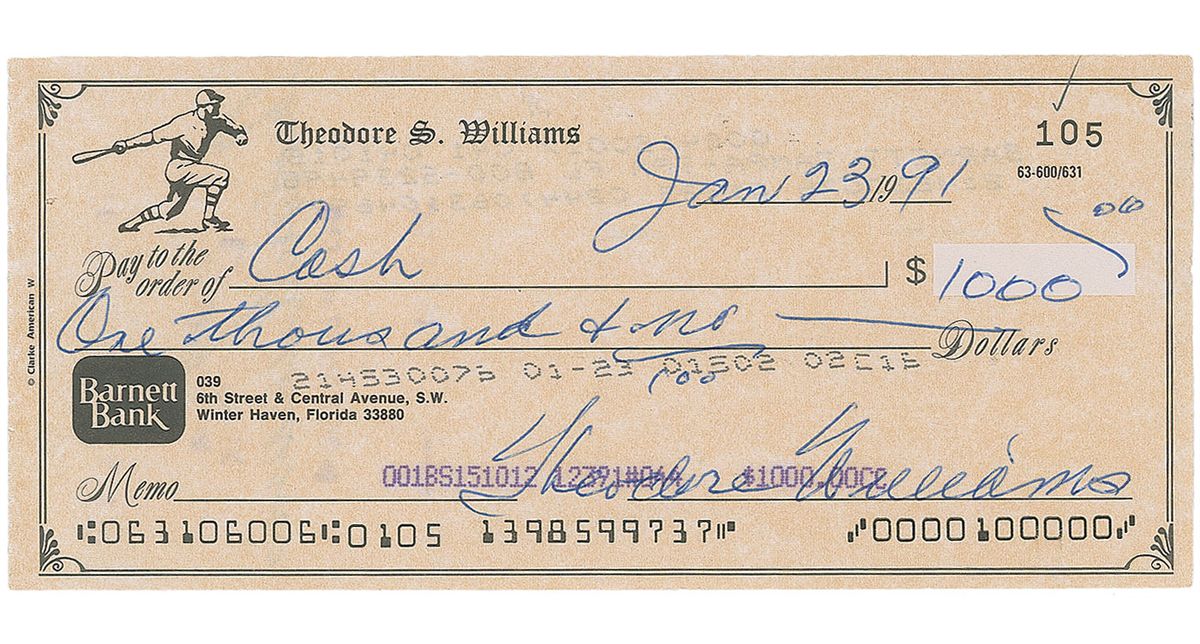 Theodore S. Williams
105
63-600/631
Jan 23 19 91
Pay to the order of Cash $ 1000 00
One thousand & no/100 Dollars
Barnett Bank
039
6th Street & Central Avenue, S.W.
Winter Haven, Florida 33880
214530075 01-23 01502 02
© Clarke American W
001BS151012 12391 $1000.00CC
Memo Theodore Williams
⑆063106006⑆0105 1398599737⑈ ⑈0000100000⑈